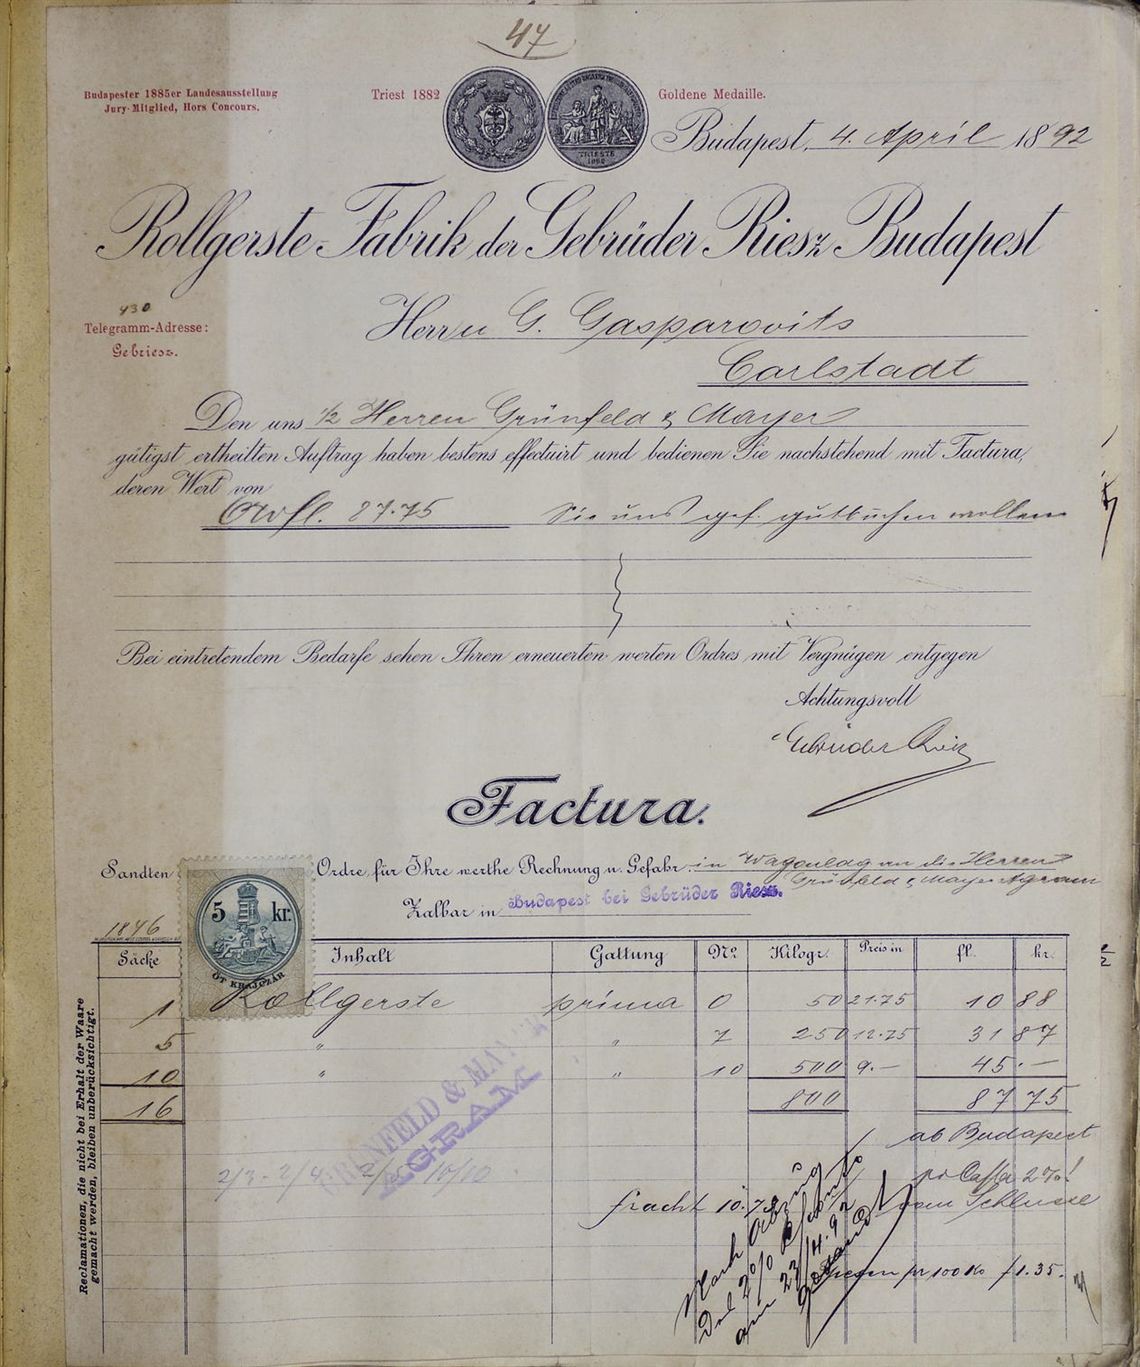 47
Budapester 1885er Landesausstellung
Jury-Mitglied, Hors Concours.
Triest 1882
TRIESTE
1882
Goldene Medaille.
Budapest, 4. April 1892
Rollgerste-Fabrik der Gebrüder Riesz Budapest
430
Telegramm-Adresse:
Gebriesz.
Herrn G. Gasparovits
Carlstadt
Den uns ½ Herren Grünfeld & Mayer
gütigst ertheilten Auftrag haben bestens effectuirt und bedienen Sie nachstehend mit Factura,
deren Wert von
Öwfl. 87.75 Sie uns gef. gutbuchen wollen
Bei eintretendem Bedarfe sehen Ihren erneuerten werten Ordres mit Vergnügen entgegen
Achtungsvoll
Gebrüder Riesz
Factura.
Sandten Ordre für Ihre werthe Rechnung u. Gefahr in Wagenldg an die Herren
Grünfeld & Mayer Agram
Zalbar in Budapest bei Gebrüder Riesz.
1846
5 kr.
ÖT KRAJCZÁR
Säcke Inhalt Gattung No. Kilogr. Preis in fl. kr.
1 Rollgerste prima 0 50 21.75 10 88
5 " " 7 250 12.75 31 87
10 " " 10 500 9.— 45 .—
16 800 87 75
GRÜNFELD & MAYER
AGRAM
ab Budapest
pr Cassa 2%!
vom Schlusse
2/3 - 2/4 10/10
fracht 10.72
Nach Abzug
Von 2% Sconto
am 23/4.92
gesandt
pr 100 Ko f 1.35.
Reclamationen, die nicht bei Erhalt der Waare
gemacht werden, bleiben unberücksichtigt.